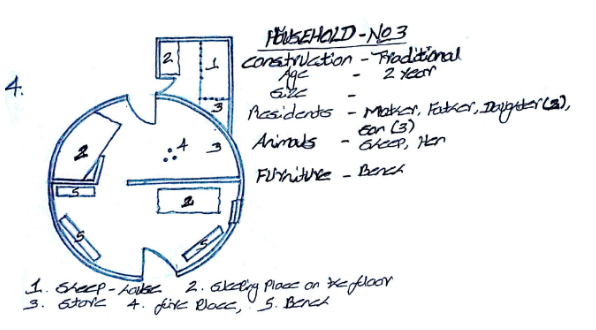 HOUSEHOLD - NO 3
4.
Construction - Traditional
Age - 2 year
Size -
Residents - Mother, Father, Daughter (3),
Son (3)
Animals - Sheep, Hen
Furniture - Bench
2
1
3
4
3
2
5
2
5
5
1. Sheep-house 2. Sleeping Place on the floor
3. Store 4. fire Place, 5. Bench